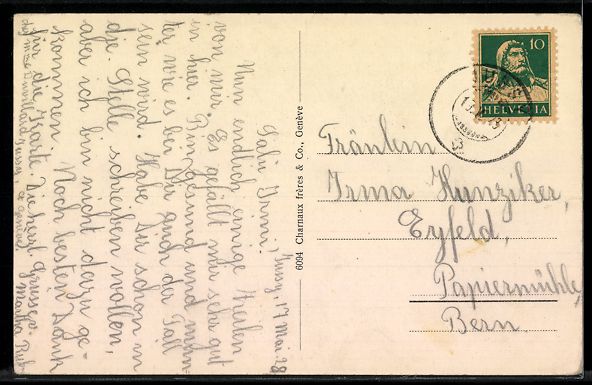 Jussy, 17 Mai 28
Salü Irmi!
Nun endlich einige Zeilen
von mir. Es gefällt mir sehr gut
in hier. Bin gesund und mun-
ter wie es bei Dir auch der Fall
sein wird. Habe Dir schon in
die Stelle schreiben wollen,
aber ich bin nicht dazu ge-
kommen. Noch besten Dank
für die Karte. Die herzl. Grüsse
Martha
Jussy
6094 Charnaux frères & Co., Genève
10
HELVETIA
Fräulein
Irma Hunziker,
Eyfeld,
Papiermühle,
Bern.